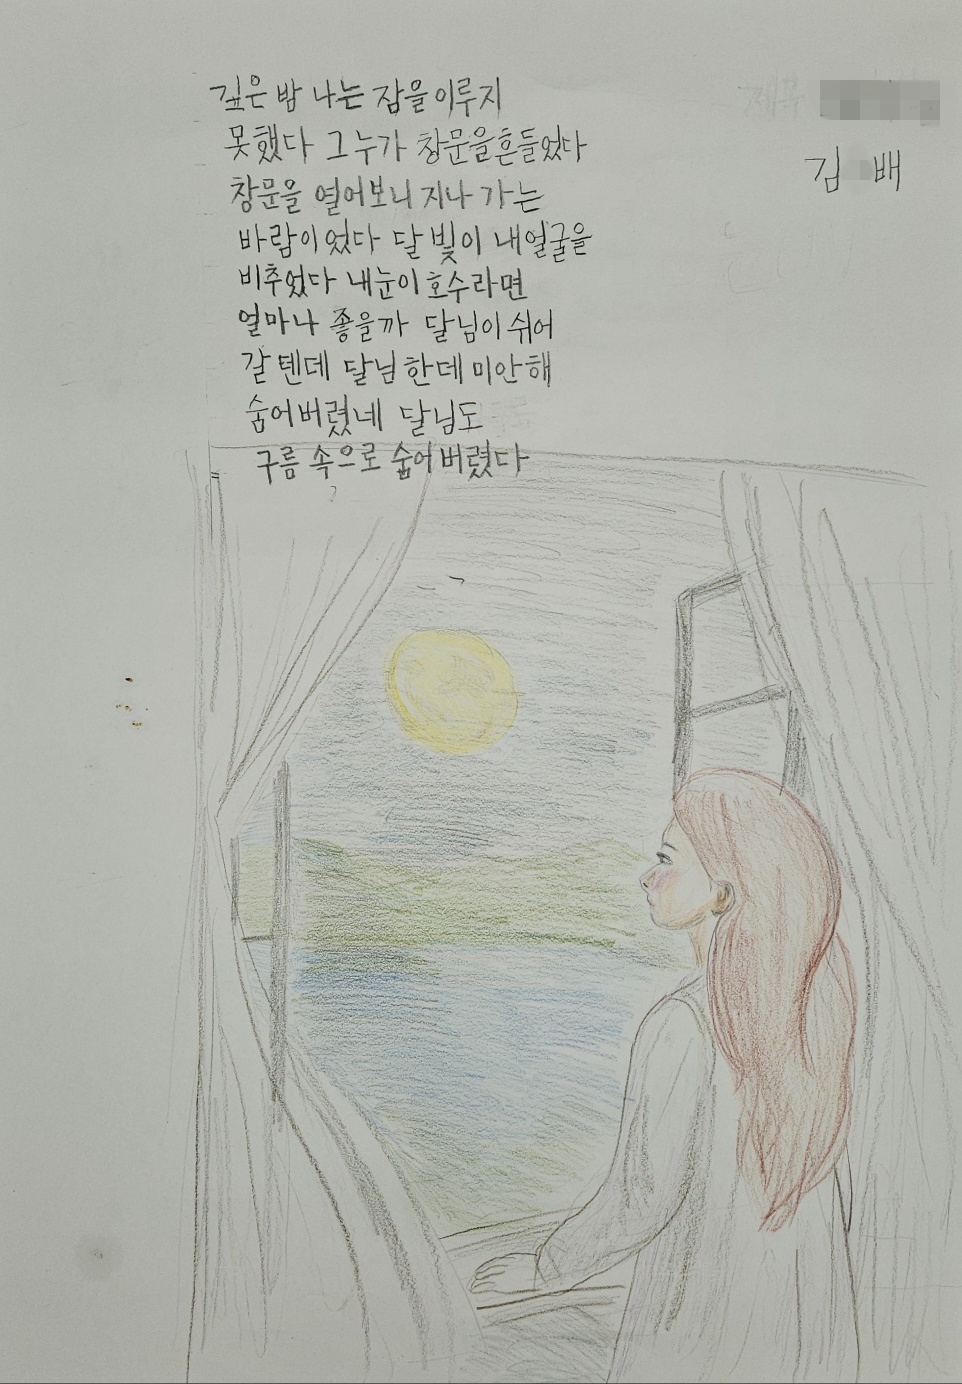 깊은 밤 나는 잠을 이루지
못했다 그 누가 창문을 흔들었다
창문을 열어보니 지나 가는
바람이 었다 달 빛이 내얼굴을
비추었다 내눈이 호수라면
얼마나 좋을까 달님이 쉬어
갈 텐데 달님 한데 미안해
숨어버렸네 달님도
구름 속으로 숨어 버렸다
김 배